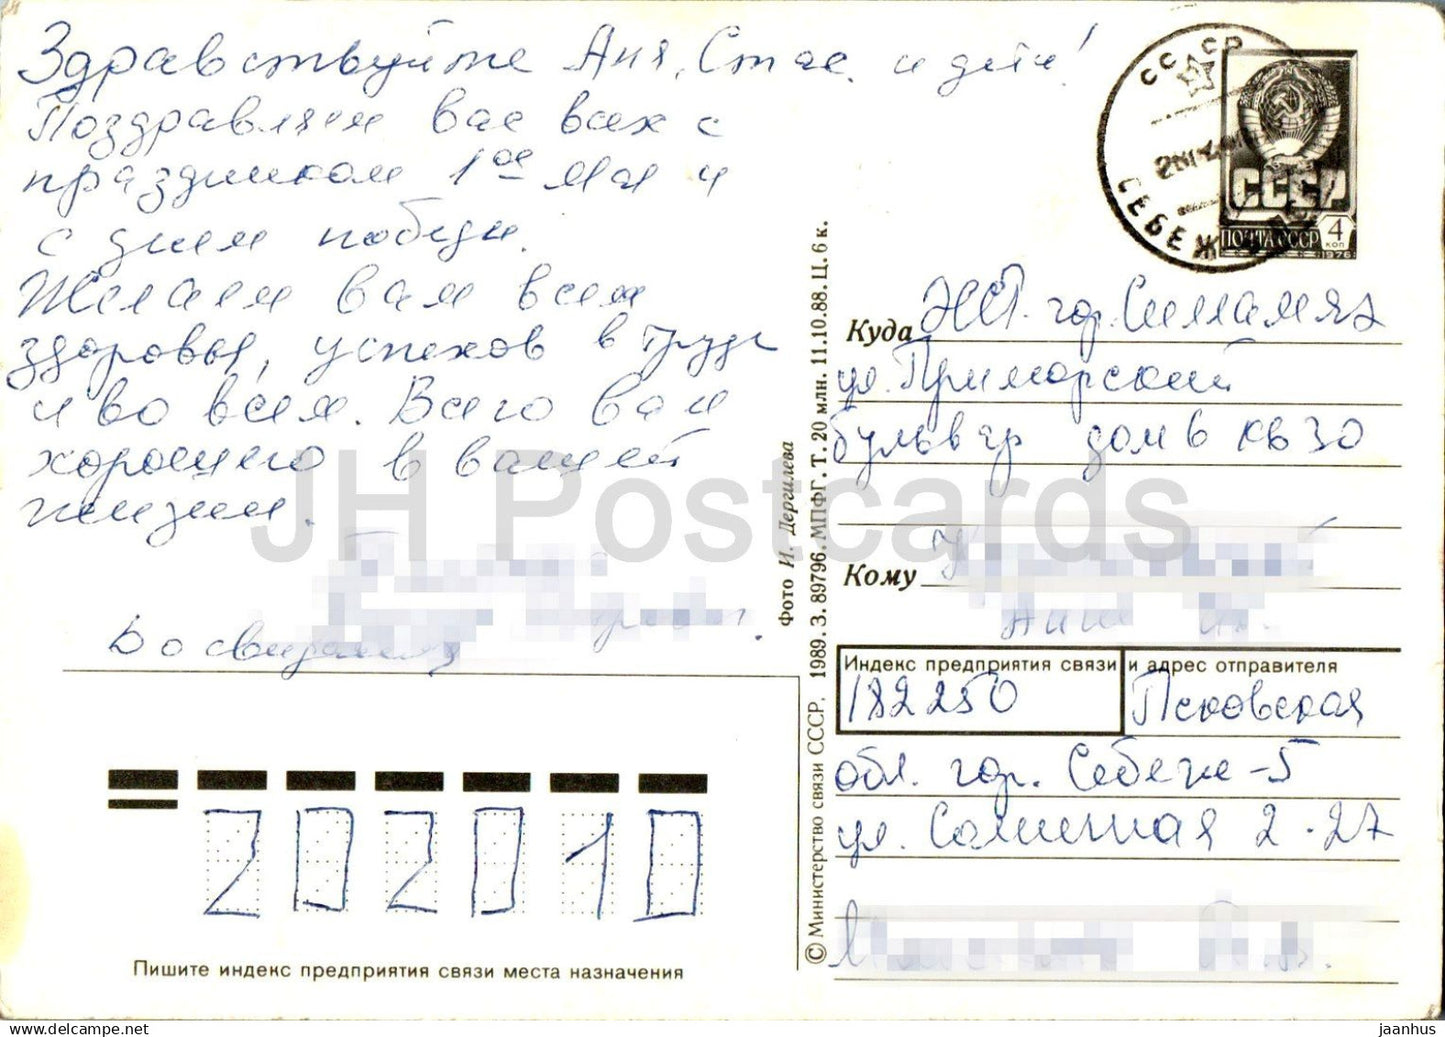 Здравствуйте Аня, Стас. и дети!
Поздравляем вас всех с
праздником 1ое мая и
с днем победы.
Желаем вам всем
здоровья, успехов в труде
и во всем. Всего вам
хорошего в вашей
жизни.
До свидания
СССР
СЕБЕЖ
СССР
ПОЧТА СССР
4 коп
1976
Куда ЭССР. гор. Силламяэ
ул. Приморский
бульвар дом 6 кв 30
Кому
Индекс предприятия связи и адрес отправителя
182250 Псковская
обл. гор. Себеж-5
ул. Солнечная 2-27
202010
Пишите индекс предприятия связи места назначения
© Министерство связи СССР. 1989. З. 89796. МПФГ. Т. 20 млн. 11.10.88. Ц. 6 к.
Фото И. Дергилева
JH Postcards
www.delcampe.net
jaanhus